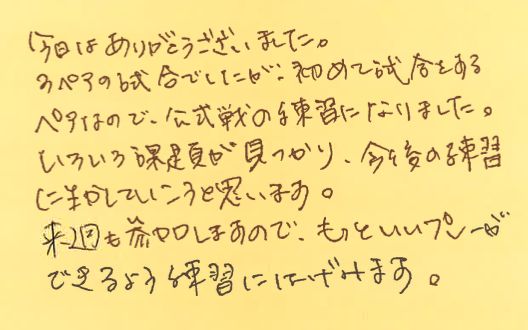 今日はありがとうございました。
3ペアの試合でしたが、初めて試合をする
ペアなので、公式戦の練習になりました。
いろいろ課題が見つかり、今後の練習
に生かしていこうと思います。
来週も参加しますので、もっといいプレーが
できるよう練習にはげみます。